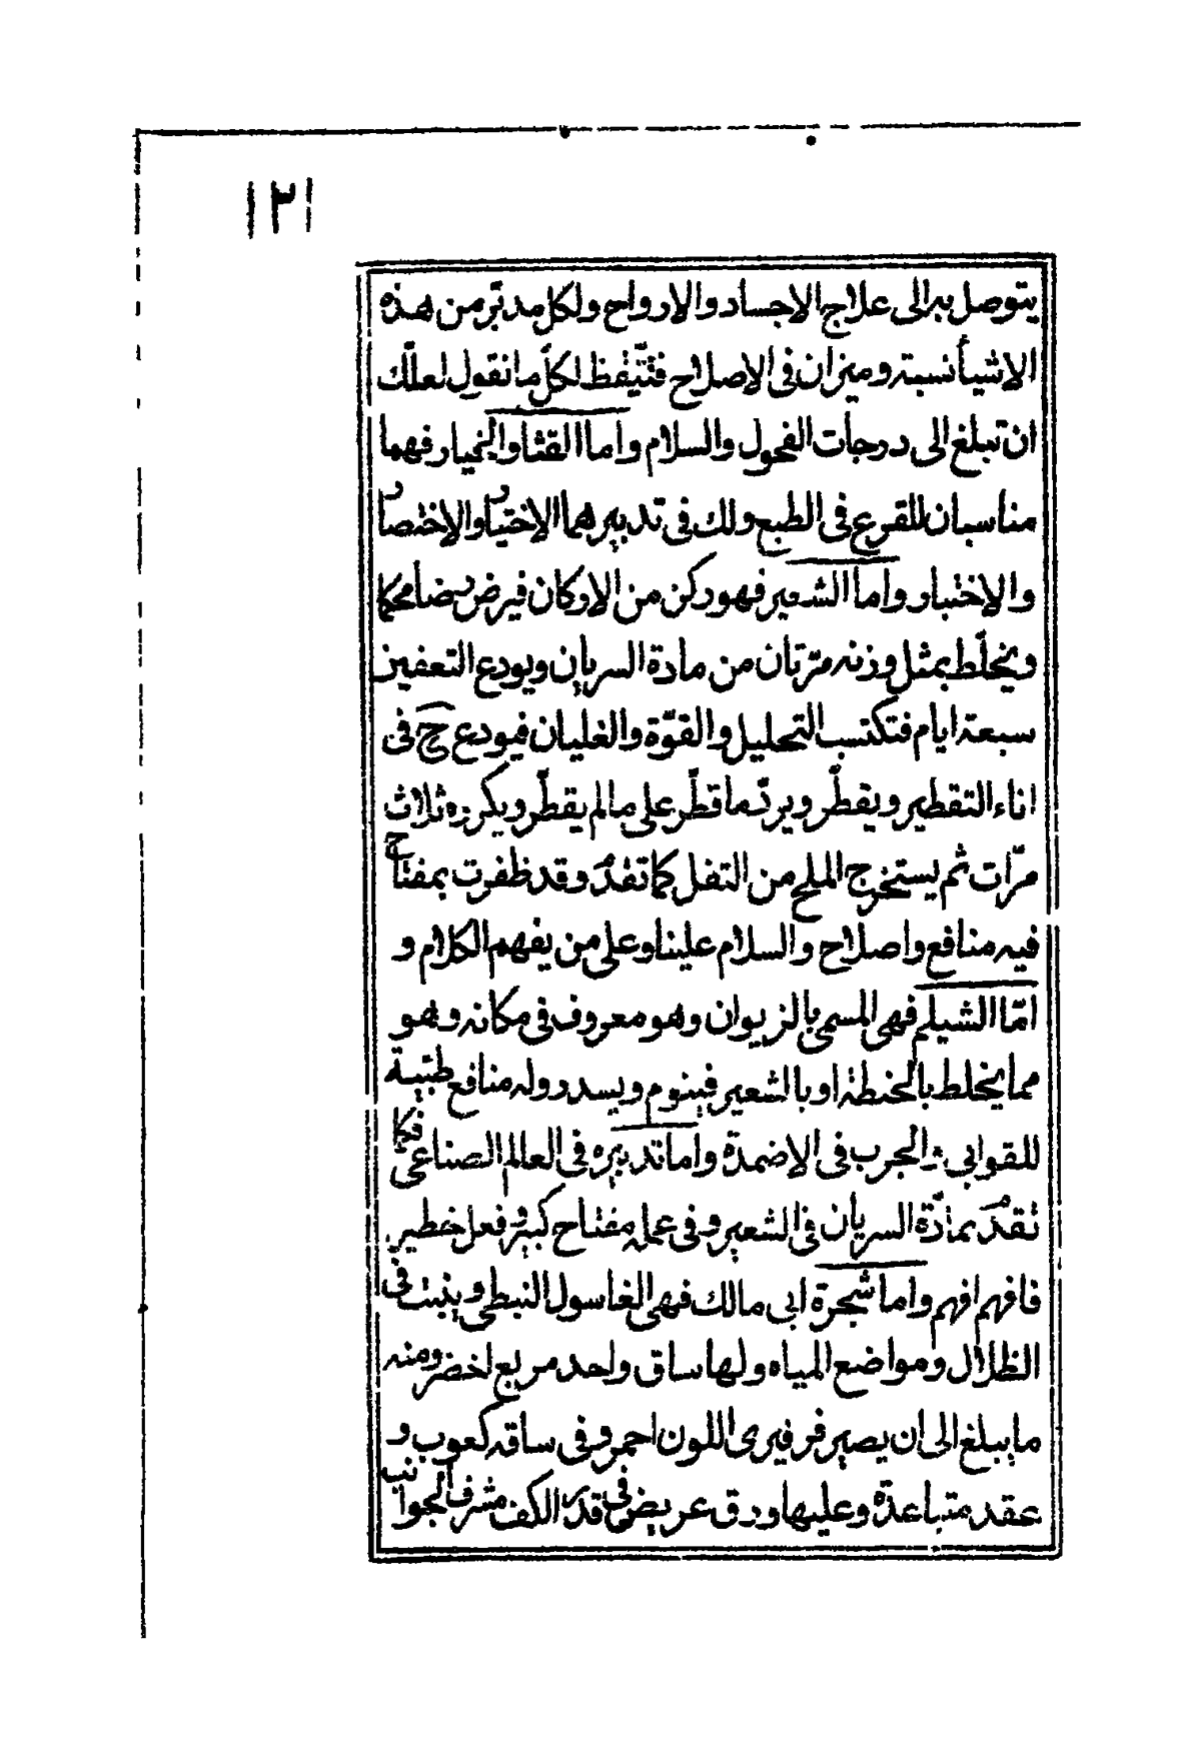 ١٢١
يتوصل به الى علاج الاجساد والارواح ولكل مدبّر من هذه
الاشيأ نسبة وميزان فى الاصلاح فتيقّظ لكلّ ما نقول لعلّك
ان تبلغ الى درجات الفحول والسلام واما القثا والخيار فهما
مناسبان للقرع فى الطبع ولك فى تدبيرهما الاختيار والاختصار
والاختبار واما الشعير فهو ركن من الاركان فيرض رضا محكما
ويخلّط بمثل وزنه مرّتان من مادة السريان ويودع التعفين
سبعة ايام فتكتسب التحليل والقوّة والغليان فيودع ح فى
اناء التقطير ويقطّر ويردّ ما قطّر على ما لم يقطّر ويكرره ثلاث
مرّات ثم يستخرج الملح من التفل كما تقدم وقد ظفرت بمفتاح
فيه منافع واصلاح والسلام علينا وعلى من يفهم الكلام و
امّا الشيلم فهى المسمى بالزيوان وهو معروف فى مكانه وهو
مما يخلط بالحنطة او بالشعير فينوم ويسدر وله منافع طبّية
للقوابى والجرب فى الاضمدة واما تدبيره فى العالم الصناعى فكما
تقدّم بمادّة السريان فى الشعير وفى عمله مفتاح كبير وفعل خطير
فافهم افهم واما شجرة ابى مالك فهى الغاسول النبطى وينبت فى
الظلال ومواضع المياه ولها ساق واحد مربع اخضر ومنه
ما يبلغ الى ان يصير فرفيرى اللون احمر وفى ساقه كعوب و
عقد متباعدة وعليها ورق عريض فى قدر الكف مشرف الجوانب